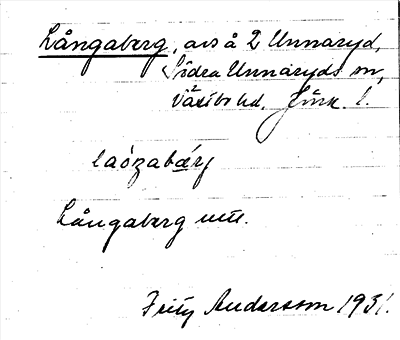 Långaberg, avs å 2 Unnaryd,
Södra Unnaryds sn,
Västbo hd. Jönk. l.
Långaberg
Fritz Andersson 1931.